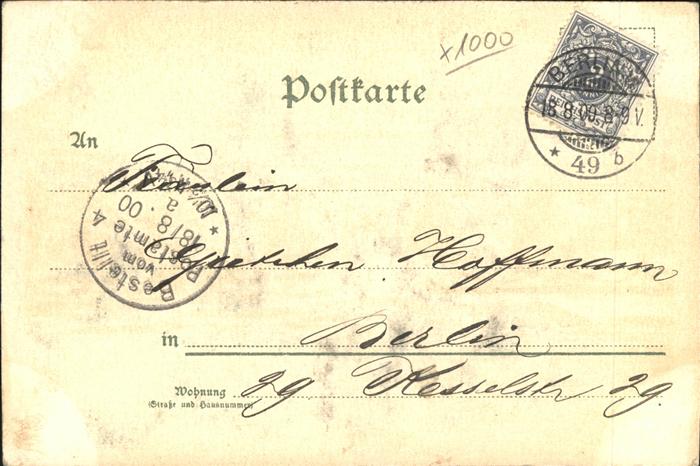 x1000
Postkarte
BERLIN
18.8.00.8-9V.
* 49 b
An
Fräulein
Gretchen Hoffmann
Bestellt
vom
Postamte 4
18/8.00
in Berlin
Wohnung 29 Kesselstr 29.
(Straße und Hausnummer)